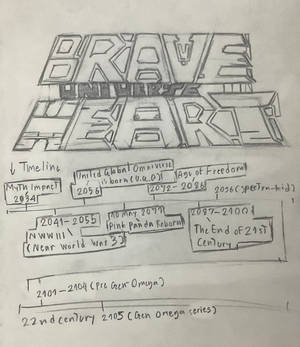 BRAVE
UNIVERSE
HEART
↓ Timeline
Myth Impact
2034
United Global Omniverse
is born (U.G.O)
2056
Age of Freedom
2072-2086
2096 (
2041-2055
NWWIII
(Near World War 3)
10 May 2077
Pink Panda Reborn
2097-2100
The End of 21st
Century
2101-2104 (Pre Gen Omega)
22nd century
2105 (Gen Omega series)